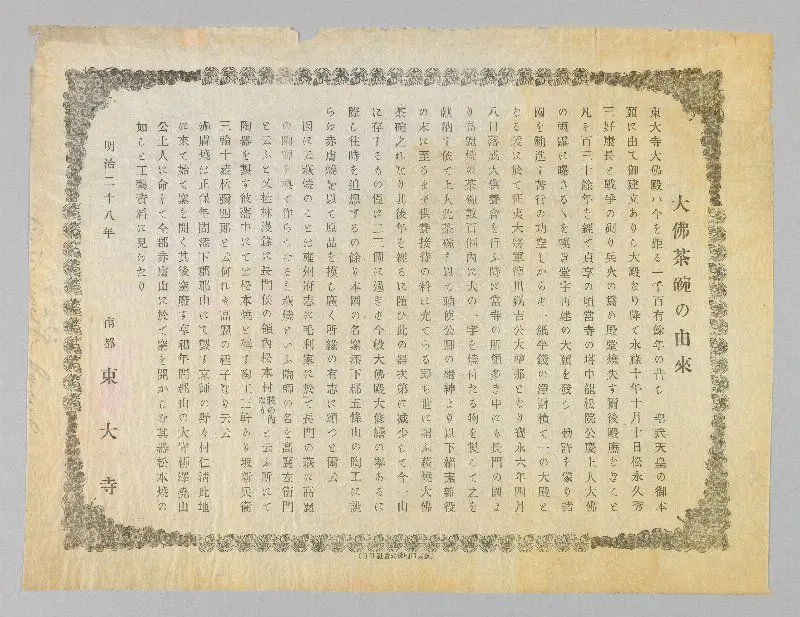 大佛茶碗の由來
東大寺大佛殿ハ今を距る一千百有餘年の昔し 聖武天皇の御本
願に由て御建立ありし大殿なり降て永祿十年十月十日松永久秀
三好康長と戰爭の砌り兵火の爲め殿堂燒失す爾後殿廡なきこと
凡を百三十餘年を經て貞享の頃當寺の塔中龍松院公慶上人大佛
の雨露に曝さるゝを嘆き堂宇再建の大願を發し 勅許を蒙り諸
國を勸進す苦行の功空しからす一紙半錢の淨財積て一の大殿と
なる爰に於て征夷大將軍德川綱吉公大檀那となり寶永六年四月
八日落慶大供養會を行ふ時に當寺の所領多き中にも長門の國よ
り高麗燒の茶碗數百個內に大の一字を燒付たる物を製して之を
獻納す依て上人此茶碗を以て勅使公卿の搢紳より以下緇素雜役
の末に至るまで供養接待の料に充てらる即ち世に謂ふ萩燒大佛
茶碗之れなり其後年を經るに隨ひ此の器次第に減少して今一山
に存するもの僅に二三個に過きす今般大佛殿大修繕の擧あるに
際し往時を追想するの餘り本國の名窯添下郡五條山の陶工に誂
らゑ赤膚燒を以て原品を模し廣く所緣の有志に頒つと爾云
因に云萩燒のことは雍州府志に毛利家に於て長門の萩に高麗
の陶師を喚て作らしむるを萩燒といふ陶師の名を高麗左衞門
と云ふと又桂林漫錄に長門侯の領內松本村萩の內なりと云ふ所にて
陶器を製す彼邊中にては松本燒と稱す陶工三軒あり坂新兵衞
三輪十藏林彌四郞と云何れも高麗の種子なり云云
赤膚燒は正保年間添下郡郡山にて製す京師の野々村仁淸此地
に來て始て窯を開く其後窯廢す享和年間郡山の大守柳澤堯山
公土人に命して全郡赤膚山に於て窯を開かしむ其器松本燒の
如しと工藝資料に見ゑたり
明治二十八年
南都 東大寺